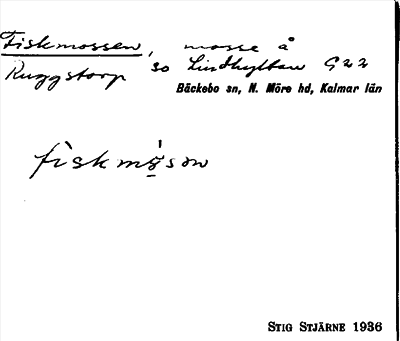 Fiskmossen, mosse å
Ruggstorp so Lindhyltan G22
Bäckebo sn, N. Möre hd, Kalmar län
fìskmo̠̍son
STIG STJÄRNE 1936